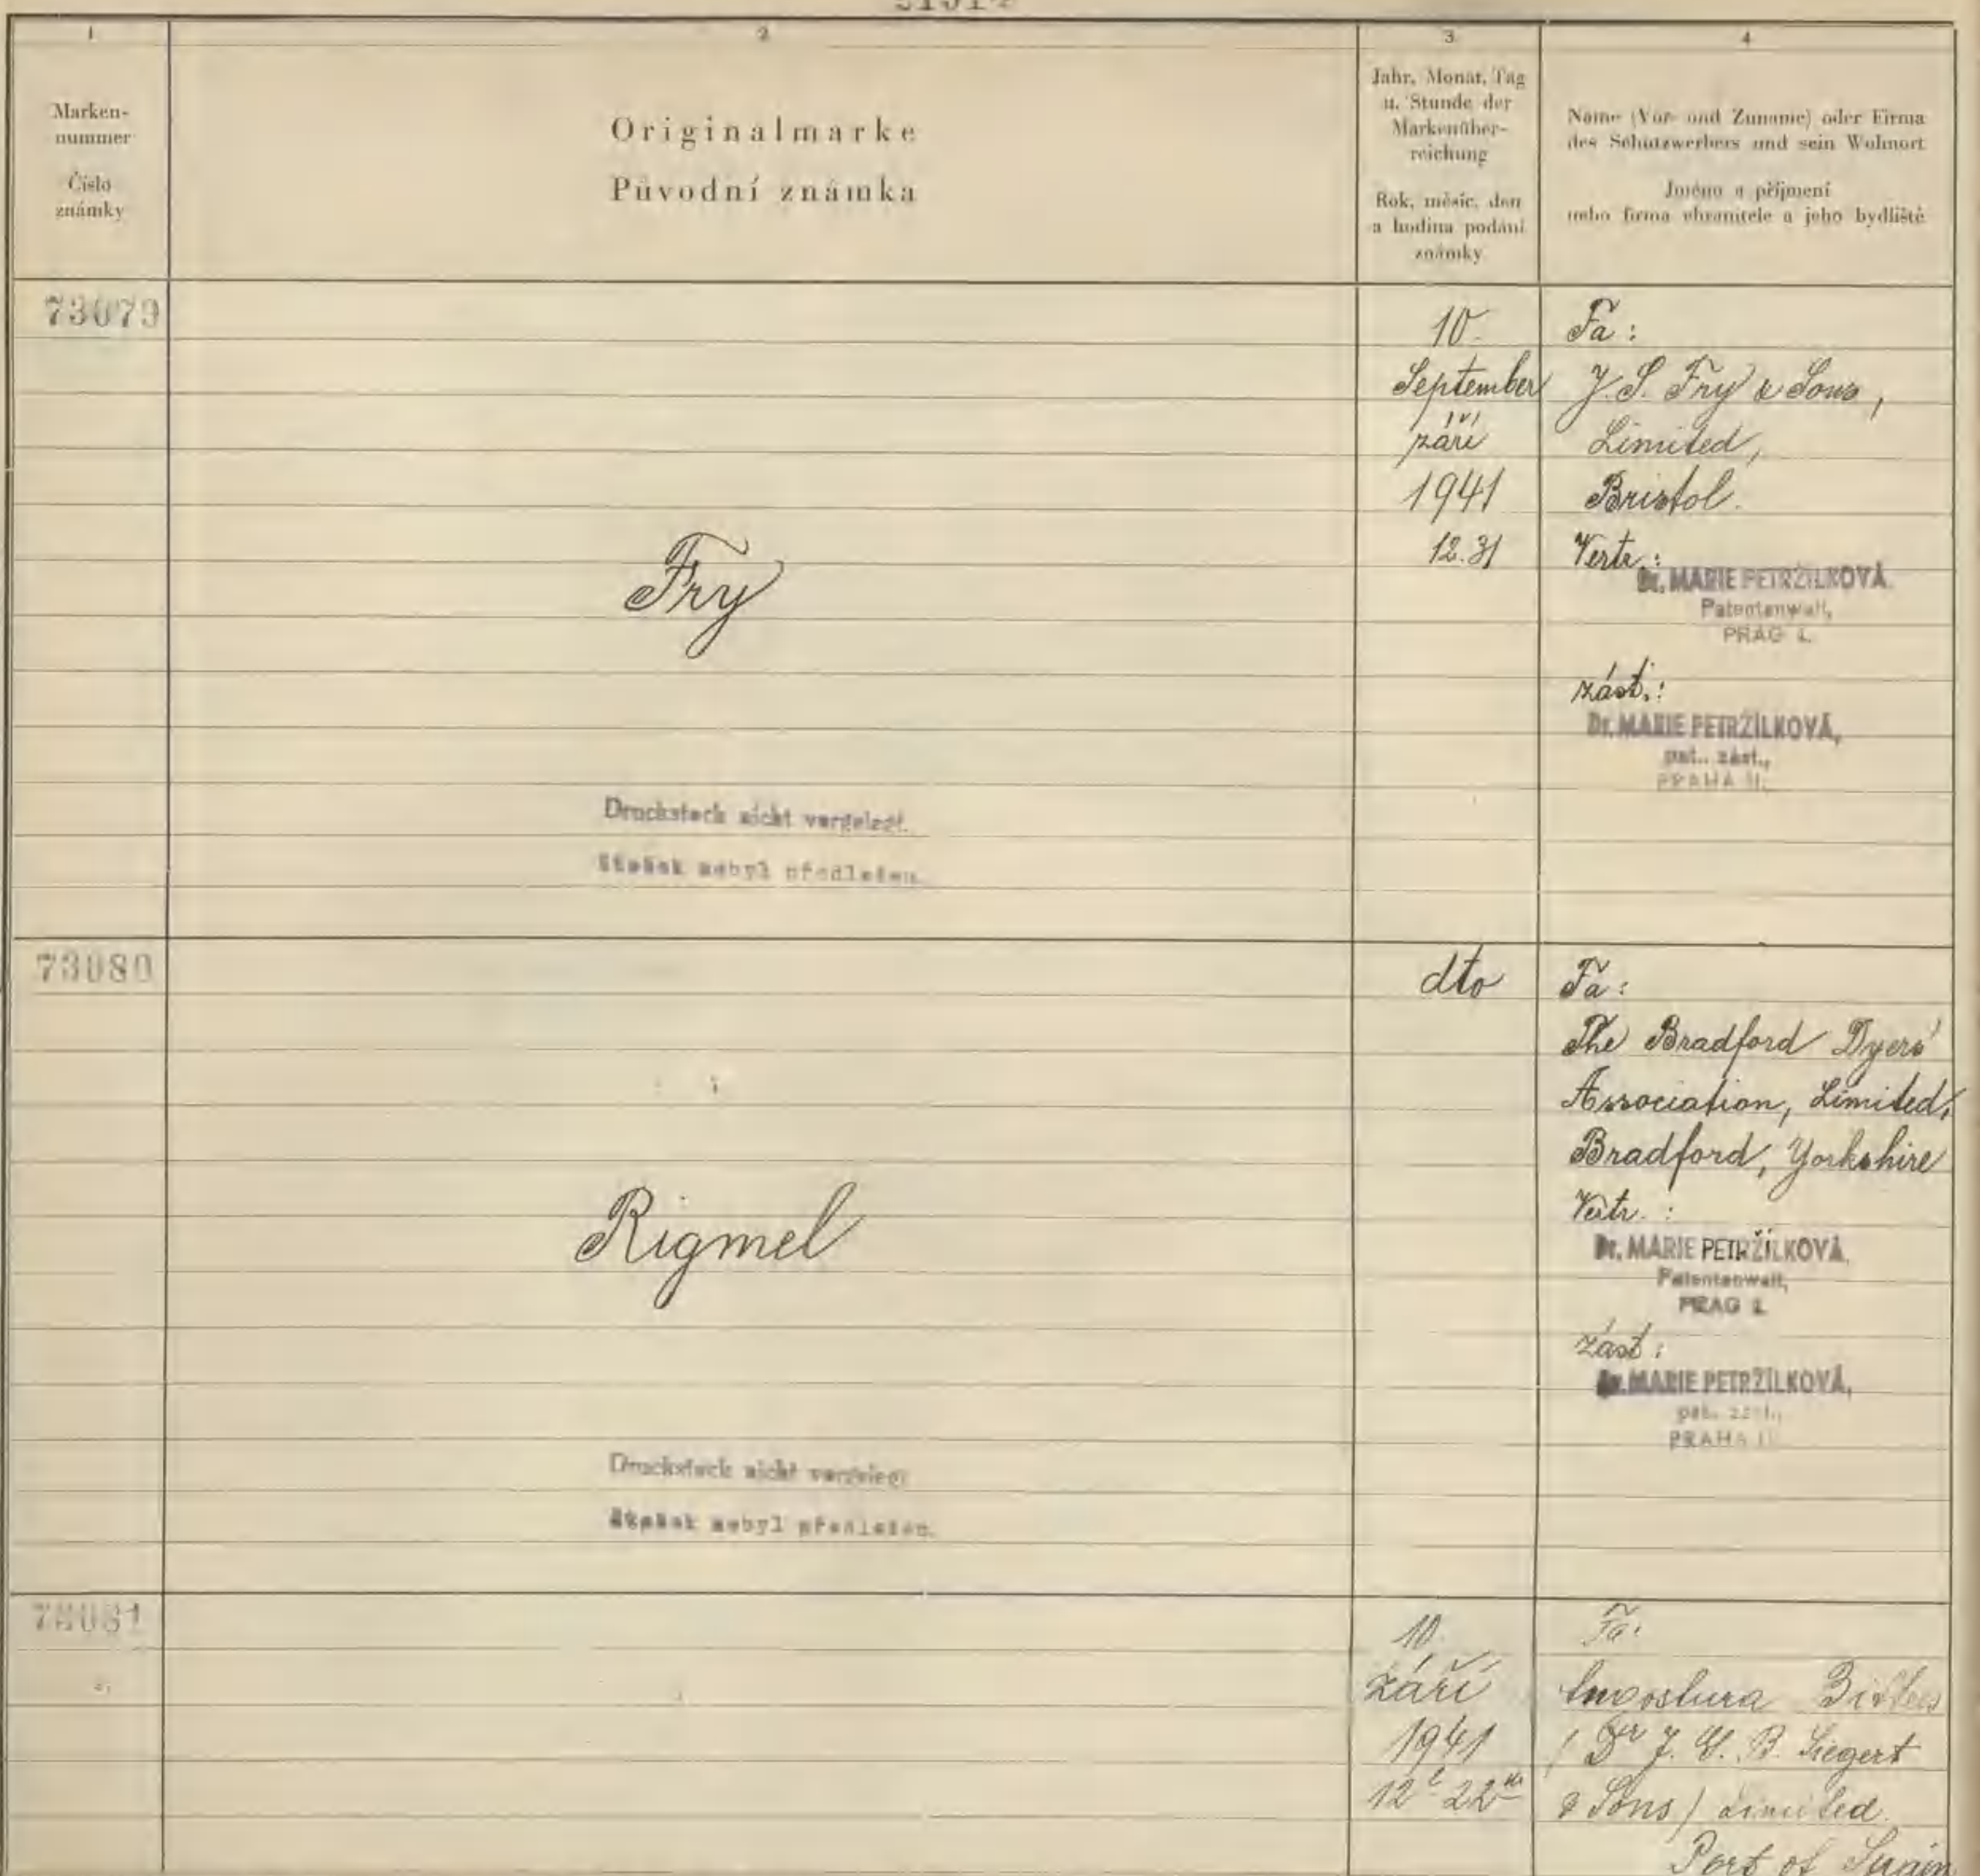 1
Marken-
nummer
Číslo
známky
2
Originalmarke
Původní známka
3
Jahr, Monat, Tag
u. Stunde der
Markenüber-
reichung
Rok, měsíc, den
a hodina podání
známky
4
Name (Vor- und Zuname) oder Firma
des Schutzwerbers und sein Wohnort
Jméno a příjmení
nebo firma chranitele a jeho bydliště
73079
Fry
Druckstock nicht vorgelegt.
Štoček nebyl předložen.
10.
September
září
1941
12.31
Fa:
J. S. Fry & Sons,
Limited,
Bristol.
Vertr.:
Dr. MARIE PETRŽILKOVÁ.
Patentanwalt,
PRAG I.
zást.:
Dr. MARIE PETRŽÍLKOVÁ,
pat. zást.,
PRAHA II.
73080
Rigmel
Druckstock nicht vorgelegt
Štoček nebyl předložen.
dto
Fa:
The Bradford Dyers'
Association, Limited,
Bradford, Yorkshire
Vertr.:
Dr. MARIE PETRŽÍLKOVÁ.
Patentanwalt,
PRAG I.
zást:
Dr. MARIE PETRŽÍLKOVÁ,
pat. zást.,
PRAHA II.
73081
10.
září
1941
12 22
Fa:
Angostura Bitters
(Dr J. G. B. Siegert
& Sons) Limited.
Port of Spain